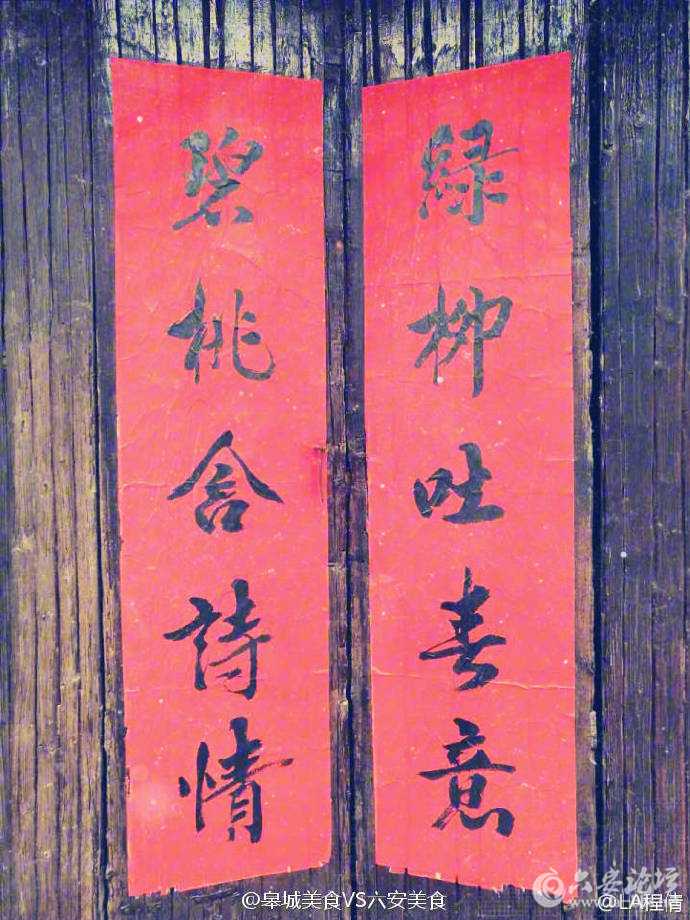 綠柳吐春意
碧桃含詩情
@皋城美食VS六安美食
六安论坛
@LA程倩